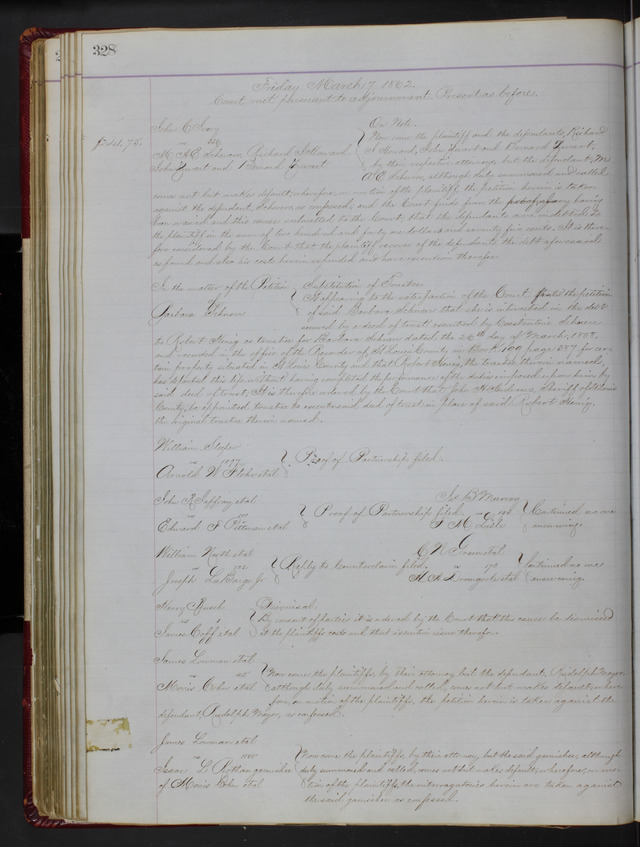 328
Friday March 7 1862.
Court met pursuant to adjournment. Present as before.
John C
On Note.
Now come the plaintiff and the defendants, Richard
and Bernard
by their respective attorneys, but the defendant, M
A E although duly summoned and called,
comes not but makes default, wherefore, on motion of the plaintiff, the petition herein is taken
against the defendant, as confessed; and the Court finds from the having
been waived and this cause submitted to the Court, that the defendants are indebted to
the plaintiff in the sum of two hundred and forty one dollars and seventy five cents. It is there-
fore considered by the Court that the plaintiff recover of the defendants the debt aforesaid
as found and also his costs herein expended and have execution therefor.
In the matter of the Petition
of
Barbara
Substitution of Trustee
It appearing to the satisfaction of the Court from the petition
of said Barbara that she is interested in the debt
secured by a deed of trust executed by Constantine
to Robert as trustee for Barbara dated the 26th day of March,
and recorded in the office of the Recorder of St Louis County in Book 100 page 257 for cer-
tain property situated in St Louis County and that Robert the trustee therein named,
has departed this life without having completed the performance of the duties imposed upon him by
said deed of trust, It is therefore ordered by the Court that John H Andrews, Sheriff of St Louis
County, be appointed trustee to execute said deed of trust in place of said Robert
the original trustee therein named.
William
vs
Arnold W et al
Proof of Partnership filed.
John R et al
vs
Edward F Pittman et al
Proof of Partnership filed.
Jas B Murray
vs
F M
Continued as on
answering.
William North et al
vs
Joseph La Barge Jr
Reply to Counterclaim filed.
C N et al
vs
et al
Continued as on
answering.
Henry
vs
James Goff et al
Dismissal.
By consent of parties it is ordered by the Court that this cause be dismissed
at the plaintiffs costs and that execution issue therefor.
James Lowman et al
vs
Morris Cohn et al
Now come the plaintiffs, by their attorney, but the defendant, Rudolph Mayer,
although duly summoned and called, comes not but makes default, where-
fore, on motion of the plaintiffs, the petition herein is taken against the
defendant, Rudolph Mayer, as confessed.
James Lowman et al
vs
Isaac L garnishee
of Morris Cohn et al
Now come the plaintiffs, by their attorney, but the said garnishee, although
duly summoned and called, comes not but makes default, wherefore, on mo-
tion of the plaintiffs, the interrogatories herein are taken against
the said garnishee as confessed.